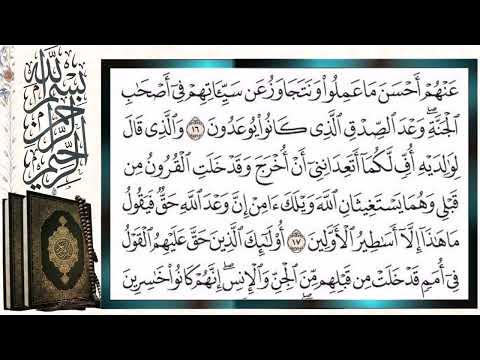 بسم الله الرحمن الرحيم
عَنْهُمْ أَحْسَنَ مَا عَمِلُوا۟ وَنَتَجَاوَزُ عَن سَيِّـَٔاتِهِمْ فِىٓ أَصْحَـٰبِ
ٱلْجَنَّةِ ۖ وَعْدَ ٱلصِّدْقِ ٱلَّذِى كَانُوا۟ يُوعَدُونَ ١٦ وَٱلَّذِى قَالَ
لِوَٰلِدَيْهِ أُفٍّ لَّكُمَآ أَتَعِدَانِنِىٓ أَنْ أُخْرَجَ وَقَدْ خَلَتِ ٱلْقُرُونُ مِن
قَبْلِى وَهُمَا يَسْتَغِيثَانِ ٱللَّهَ وَيْلَكَ ءَامِنْ إِنَّ وَعْدَ ٱللَّهِ حَقٌّ فَيَقُولُ
مَا هَـٰذَآ إِلَّآ أَسَـٰطِيرُ ٱلْأَوَّلِينَ ١٧ أُو۟لَـٰٓئِكَ ٱلَّذِينَ حَقَّ عَلَيْهِمُ ٱلْقَوْلُ
فِىٓ أُمَمٍ قَدْ خَلَتْ مِن قَبْلِهِم مِّنَ ٱلْجِنِّ وَٱلْإِنسِ ۖ إِنَّهُمْ كَانُوا۟ خَـٰسِرِينَ